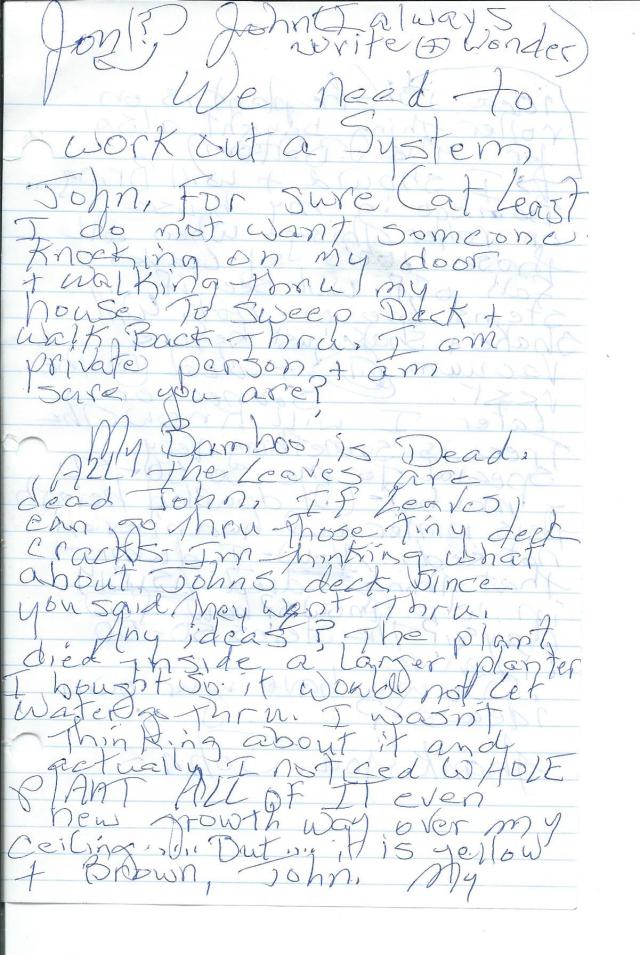 Jon(?) John (I always
write + wonder)
We need to
work out a System
John, For sure (at Least
I do not want someone
knocking on my door
+ walking thru my
house To Sweep Deck +
walk Back Thru. I am
private person + am
sure you are?
My Bamboo is Dead.
ALL the Leaves are
dead John. If Leaves
can go thru those tiny deck
cracks Im thinking what
about Johns deck since
you said they went thru.
Any ideas? The plant
died inside a Larger planter
I bought so it would not let
water go thru. I wasn't
thinking about it and
actually I noticed WHOLE
PLANT ALL OF IT even
new growth way over my
ceiling..... But.... it is yellow
+ Brown, John. My